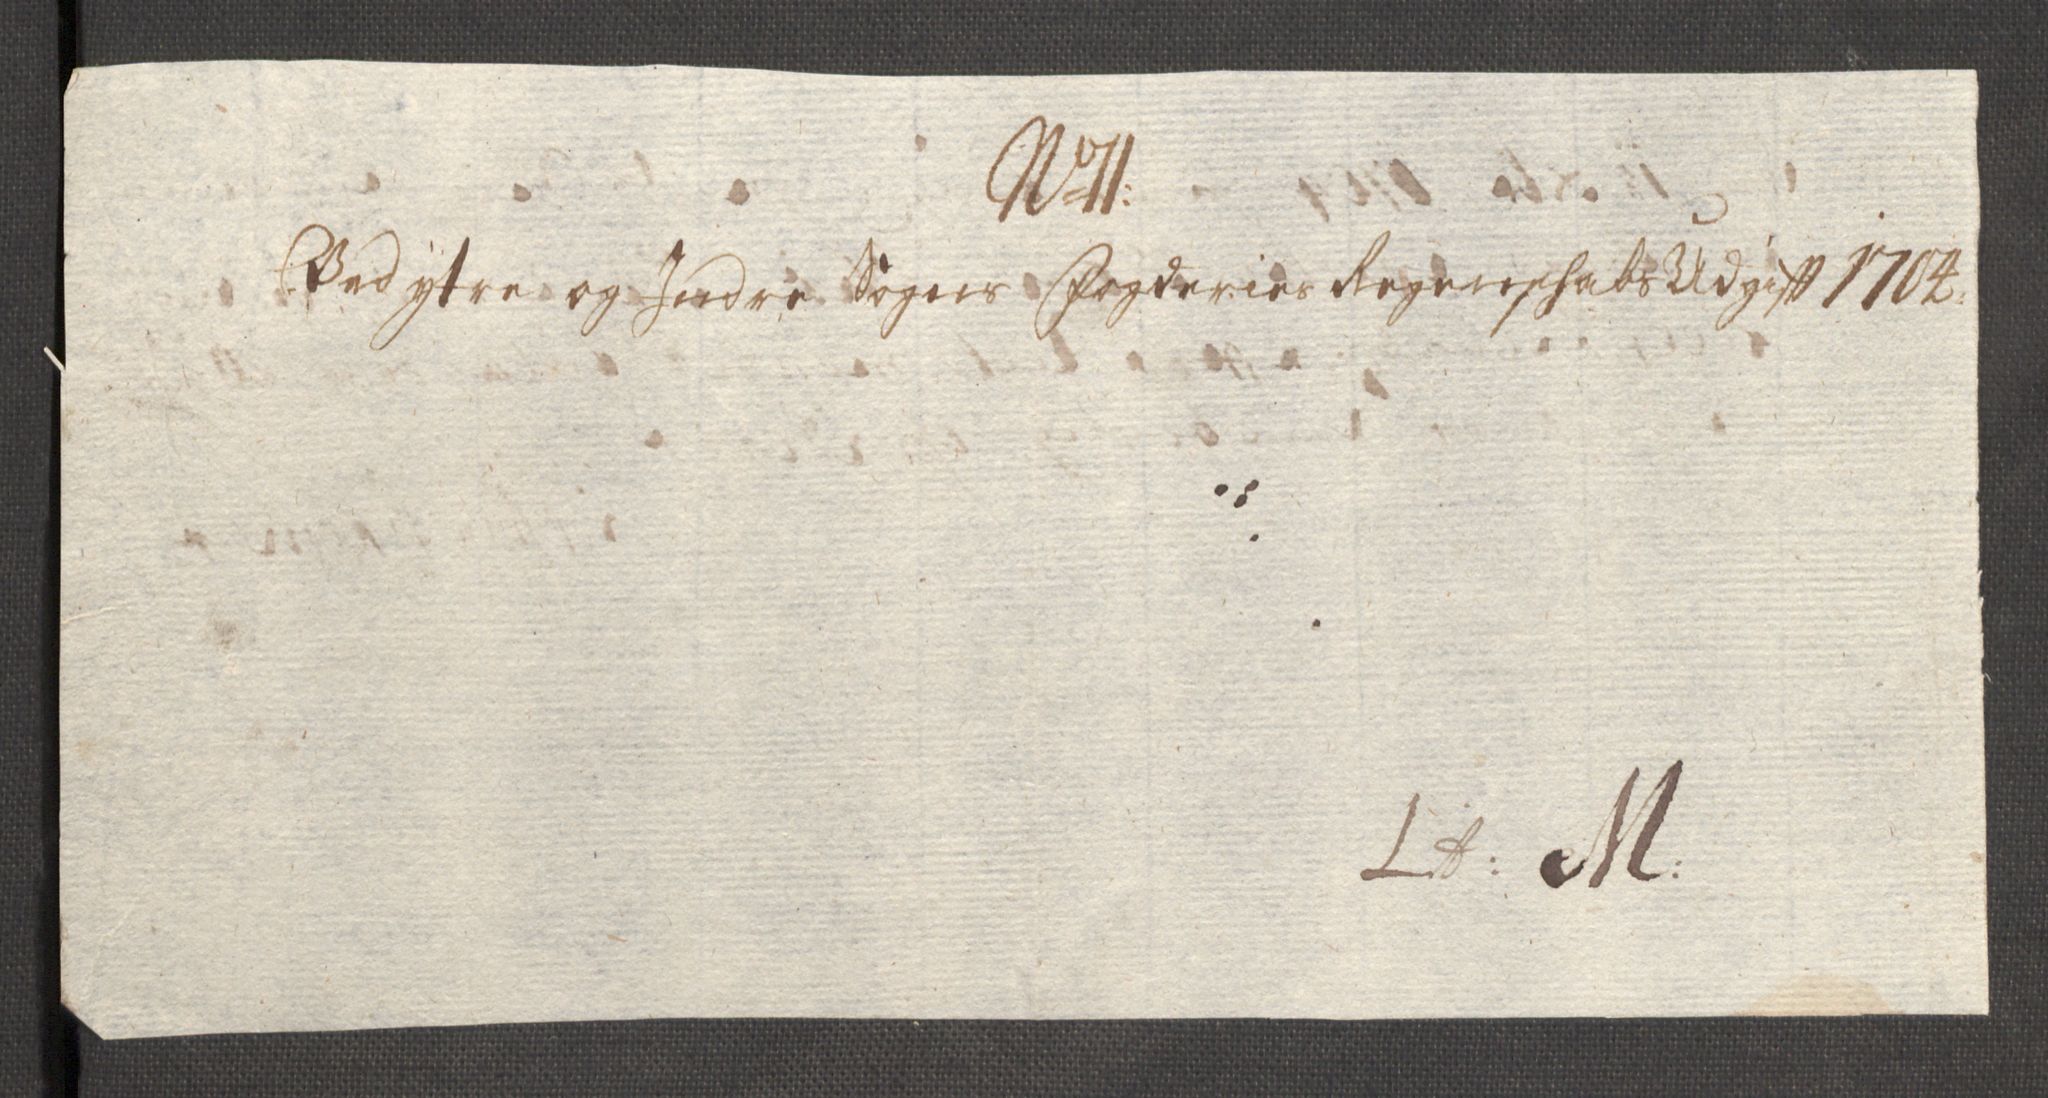 No 11:
Ved ytre og Indre Sogns Fogderies Regenschabs Udgift 1704:
Lit: M: